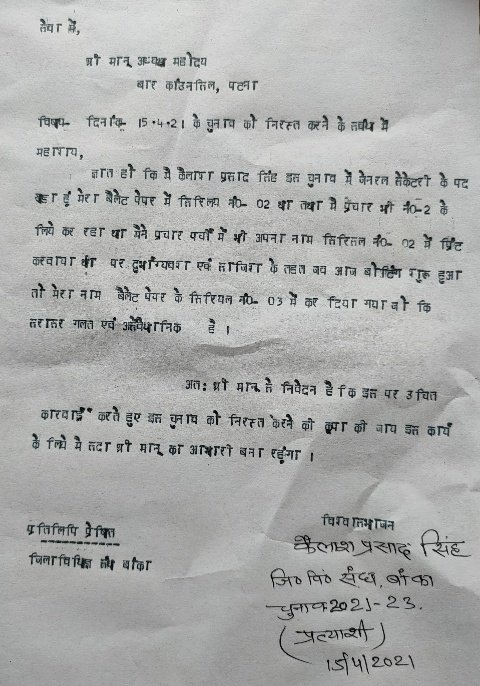 सेवा में,
श्री मान् अध्यक्ष महोदय
बार काँउनसिल, पटना
विषय- दिनांक- 15.4.21 के चुनाव को निरस्त करने के संबंध में
महाशय,
ज्ञात हो कि मै कैलाश प्रसाद सिंह इस चुनाव में जेनरल सेकेटरी के पद
खडा हूं मेरा बैलेट पेपर में सिरियल नं0- 02 था तथा मै प्रचार भी नं0-2 के
लिये कर रहा था मैने प्रचार पर्चा में भी अपना नाम सिरियल नं0- 02 में प्रिंट
करवाया था पर दुर्भाग्यवश एवं साजिश के तहत जब आज वोटिंग शुरू हुआ
तो मेरा नाम बैलेट पेपर के सिरियल नं0- 03 में कर दिया गया जो कि
सरासर गलत एवं असंवैधानिक है ।
अत: श्री मान् से निवेदन है कि इस पर उचित
कारवाई करते हुए इस चुनाव को निरस्त करने की कृपा की जाय इस कार्य
के लिये मै सदा श्री मान् का आभारी बना रहूंगा ।
प्रतिलिपि प्रेषित
जिला विधिज्ञ संघ बांका
विश्वासभाजन
कैलाश प्रसाद सिंह
जि० वि० संघ, बांका
चुनाव 2021-23.
(प्रत्याशी)
15/4/2021